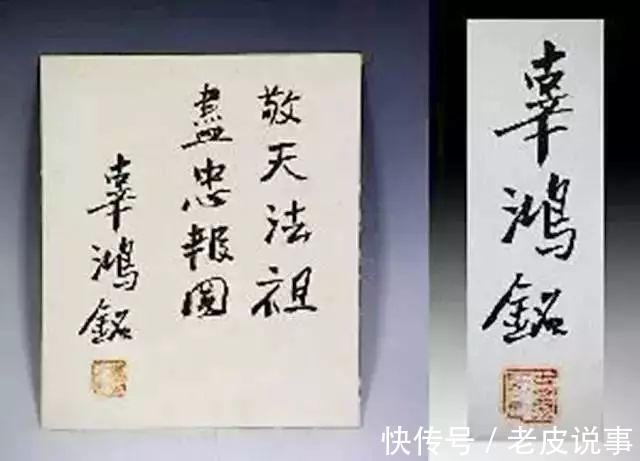 敬天法祖
盡忠報國
辜鴻銘
辜鴻銘
快传号 / 老皮说事